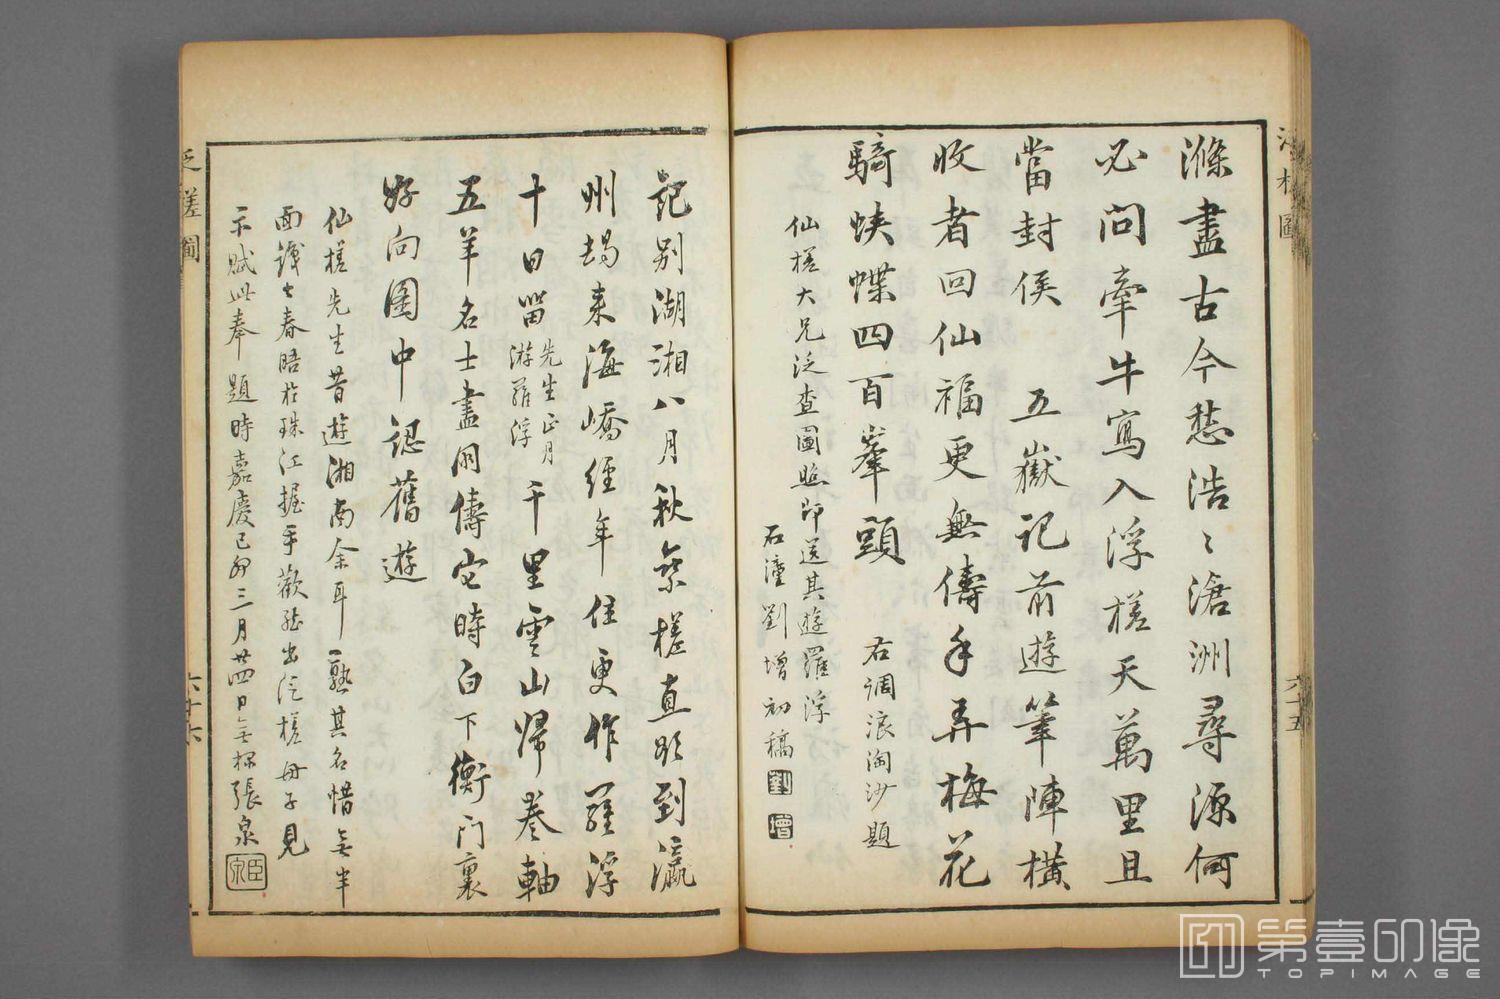 滌盡古今愁浩〻滄洲尋源何
必問牽牛寫入浮槎天萬里且
當封侯　五嶽記前遊筆陣橫
收者回仙福更無儔手弄梅花
騎蛺蝶四百峯頭
右調浪淘沙題
仙槎大兄泛查圖照即送其遊羅浮
石潼劉增初稿
劉
增
六十五
記別湖湘八月秋乘槎直欲到瀛
州朅来海嶠經年住更作羅浮
十日留先生正月游羅浮千里雲山歸卷軸
五羊名士盡朋儔它時白下衡门裏
好向圖中認舊遊
仙槎先生昔遊湘南余耳熟其名惜無半
面識也春晤於珠江握手歡然出泛槎冊子見
示賦此奉題時嘉慶己卯三月廿四日張泉
臣泉
泛槎圖
六十六
第壹印像
TOPIMAGE